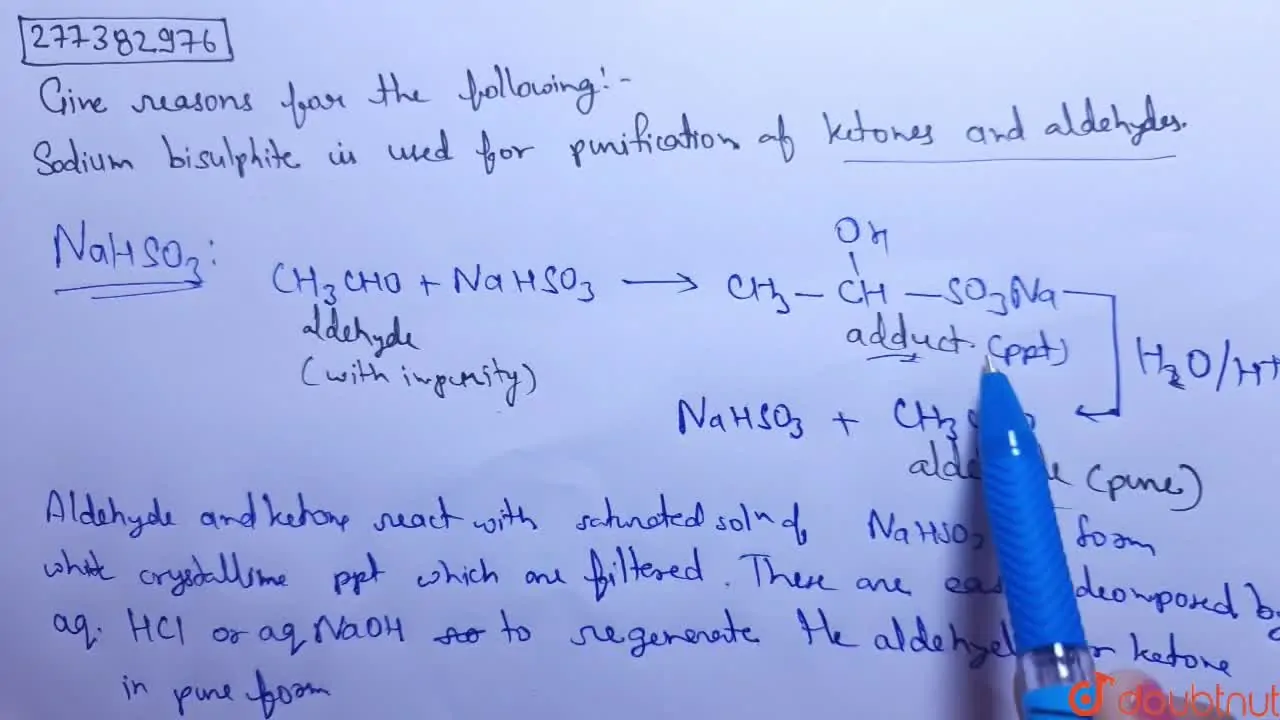 277382976
Give reasons for the following:-
Sodium bisulphite is used for purification of ketones and aldehydes.
OH
NaHSO3:
CH3CHO + NaHSO3 → CH3 – CH – SO3Na
aldehyde
adduct (ppt)
H2O/H+
(with impurity)
NaHSO3 + CH3
(pure)
Aldehyde and ketone react with saturated soln of NaHSO3 form
white crystalline ppt which are filtered. These are decomposed by
aq. HCl or aq NaOH to regenerate the aldehyde or ketone
in pure form
doubtnut